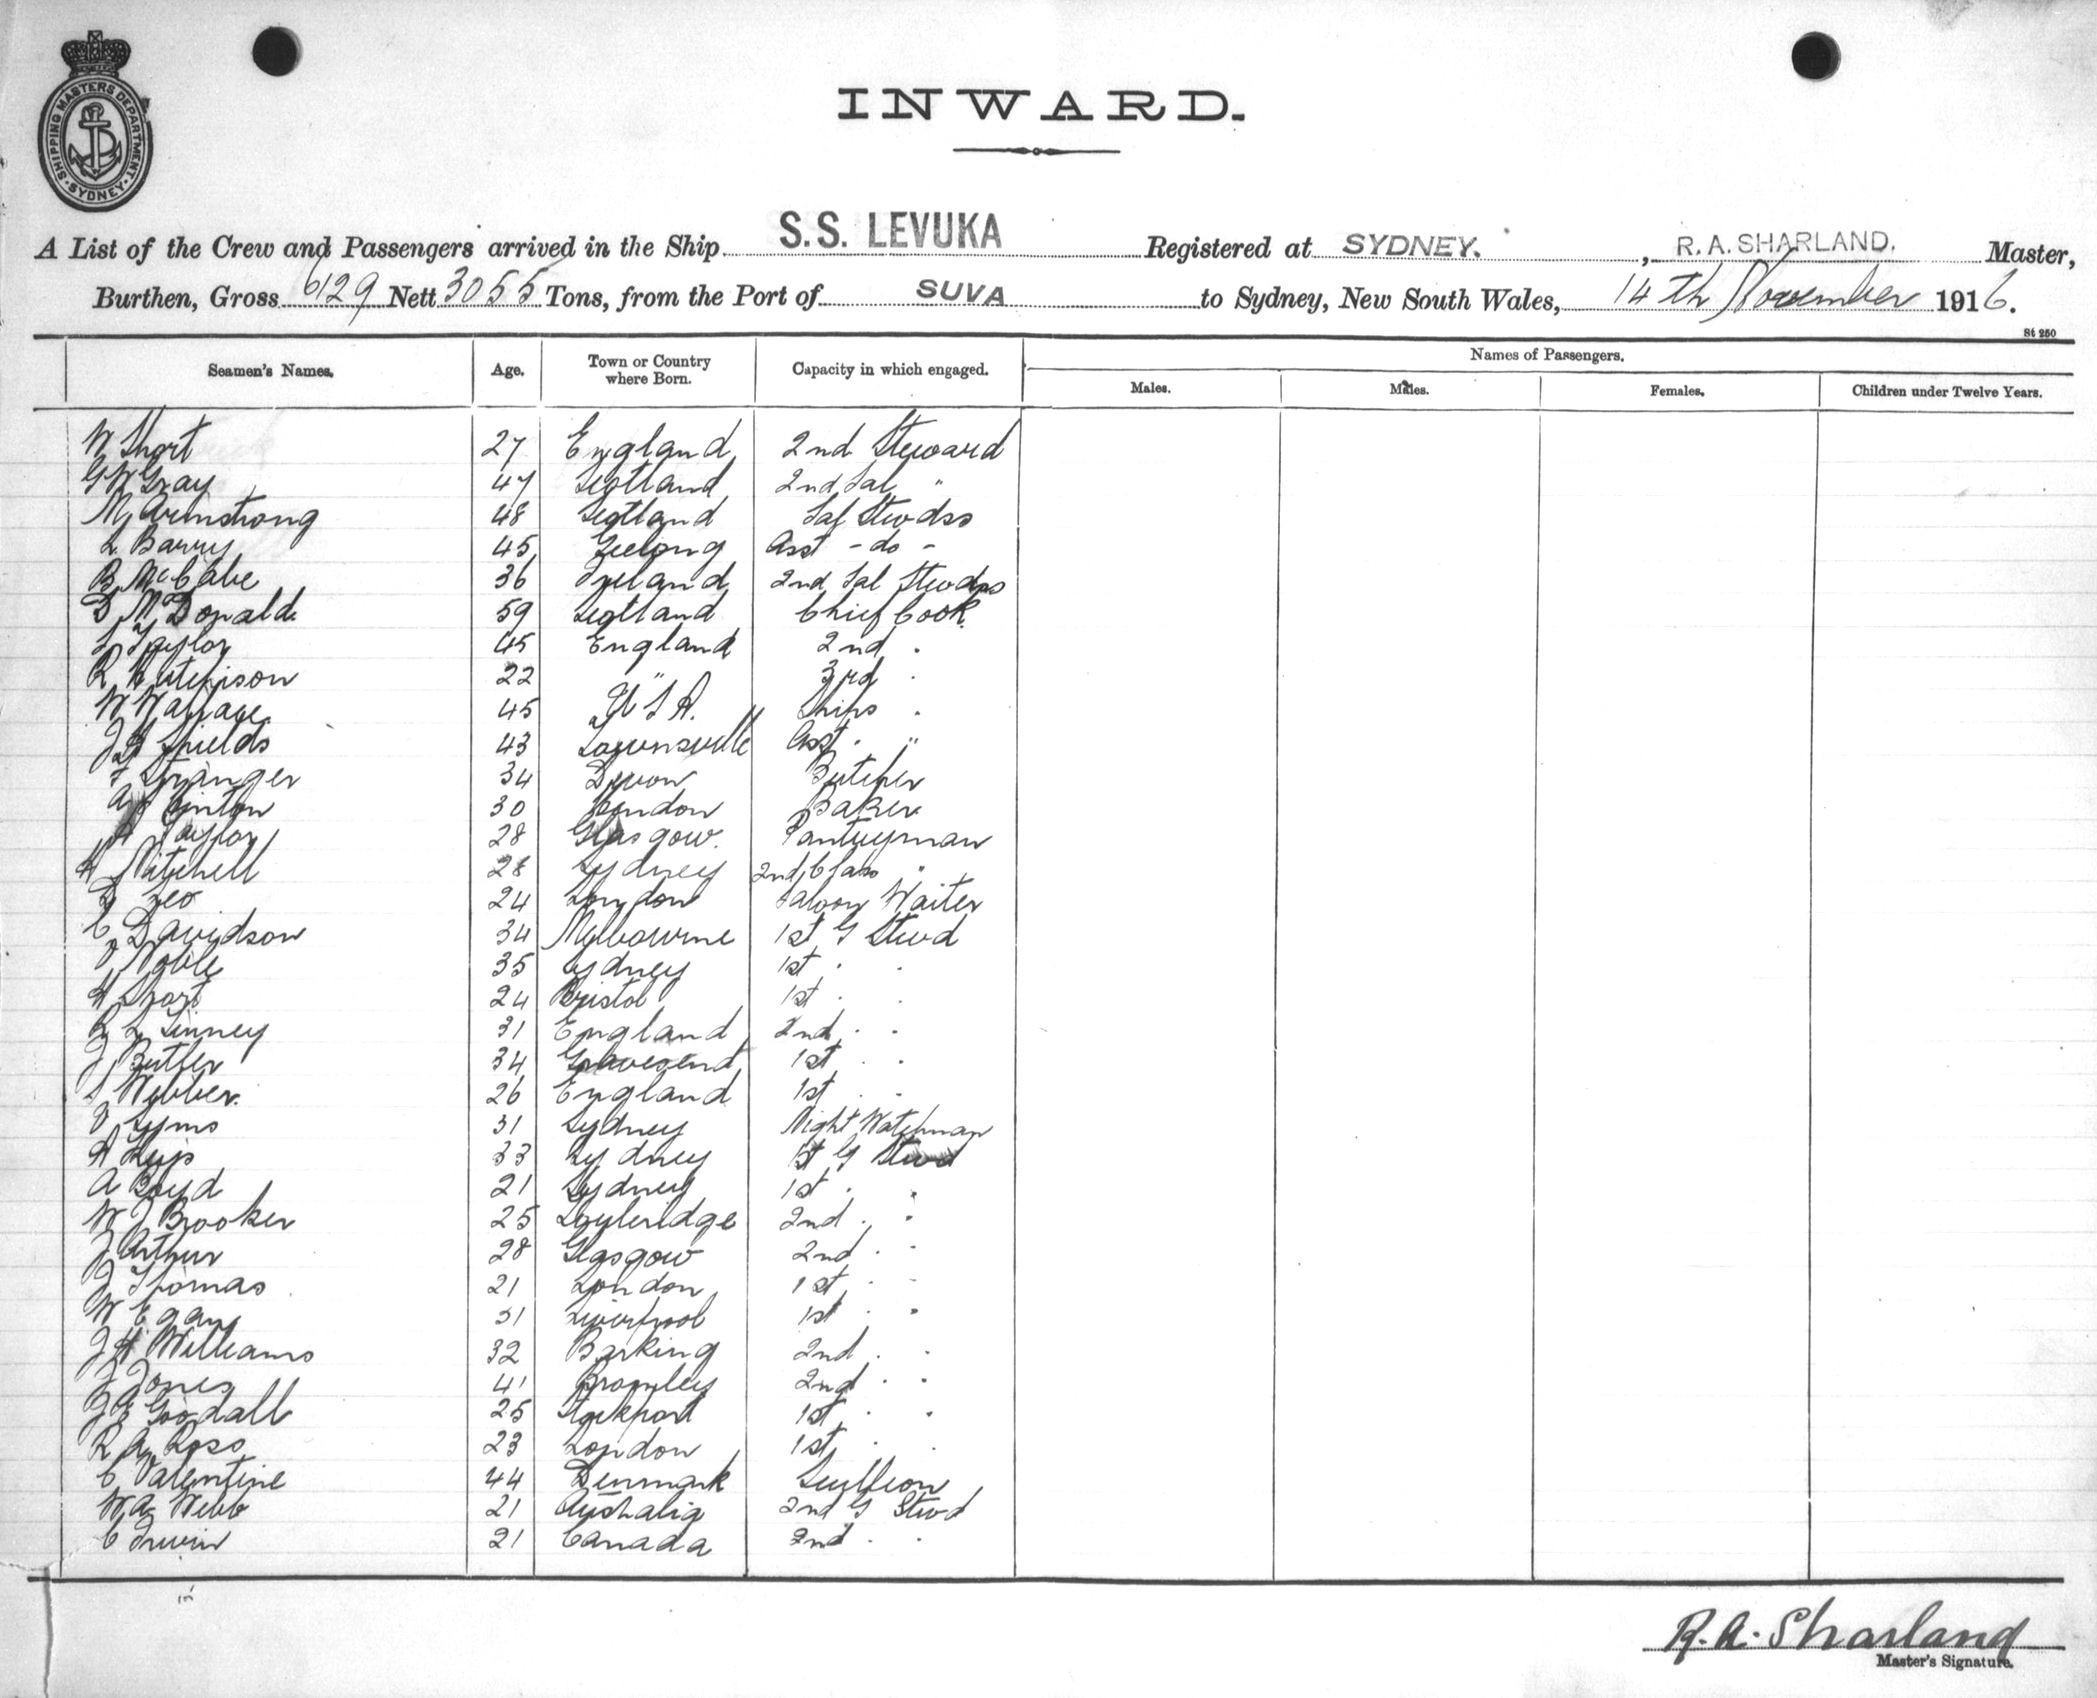 SHIPPING MASTERS DEPARTMENT
SYDNEY
INWARD.
A List of the Crew and Passengers arrived in the Ship S.S. LEVUKA Registered at SYDNEY. , R. A. SHARLAND. Master,
Burthen, Gross 6129 Nett 3055 Tons, from the Port of SUVA to Sydney, New South Wales, 14th November 1916.
St 250
Seamen's Names. Age. Town or Country where Born. Capacity in which engaged. Names of Passengers.
Males. Males. Females. Children under Twelve Years.
W Short 27 England 2nd Steward
G W Gray 47 Scotland 2nd Sal "
M Armstrong 48 Scotland Sal Stwdss
L Barry 45 Geelong Asst - do -
B McCabe 36 Ireland 2nd Sal Stwdss
D McDonald 59 Scotland Chief Cook
Taylor 45 England 2nd "
R Hutchison 22 " 3rd "
W Wallace 45 U S A. Ships "
J Shields 43 Townsville Asst. "
F Stranger 34 Devon Butcher
A Linton 30 London Baker
A Taylor 28 Glasgow. Pantryman
H Mitchell 28 Sydney 2nd Class "
D Leo 24 London Saloon Waiter
C Davidson 34 Melbourne 1st G Stwd
J Noble 35 Sydney 1st " "
H Short 24 Bristol 1st " "
R L Tinney 31 England 2nd " "
J Butler 34 Gravesend 1st " "
S Webber. 26 England 1st " "
J Syms 31 Sydney Night Watchman
H 33 Sydney 1st G Stwd
A Boyd 21 Sydney 1st " "
W J Brooker 25 2nd " "
J Arthur 28 Glasgow 2nd " "
J Thomas 21 London 1st " "
W Egan 31 Liverpool 1st " "
J H Williams 32 Barking 2nd " "
J Jones 41 Bromley 2nd " "
J E Goodall 25 Stockport 1st " "
R A Ross 23 London 1st " "
C Valentine 44 Denmark Scullion
W A Webb 21 Australia 2nd G Stwd
C Irwin 21 Canada 2nd " "
R. A. Sharland
Master's Signature.